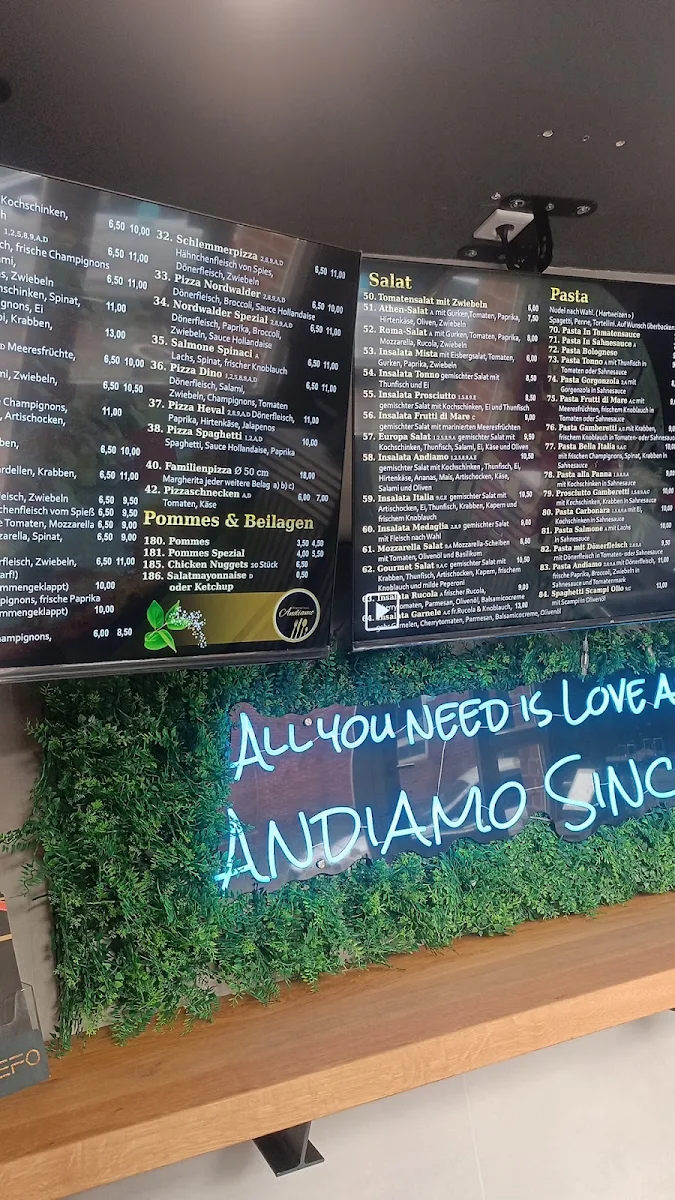 Kochschinken,
6,50 10,00
1,2,5,8,9,A,D
ch, frische Champignons
6,50 11,00
Zwiebeln
6,50 11,00
nschinken, Spinat,
gnons, Ei
11,00
ol, Krabben,
13,00
Meeresfrüchte,
6,50 10,00
mi, Zwiebeln,
6,50 10,50
e Champignons,
, Artischocken,
11,00
ben,
6,50 10,00
ordellen, Krabben,
6,50 11,00
fleisch, Zwiebeln 6,50 9,50
chenfleisch vom Spieß 6,50 9,50
e Tomaten, Mozzarella 6,50 9,00
zarella, Spinat,
6,50 9,00
leisch, Zwiebeln,
6,50 11,00
arfl)
mmengeklappt) 10,00
pignons, frische Paprika
mmengeklappt) 10,00
hampignons,
6,00 8,50
32. Schlemmerpizza 2,8,9,A,D
Hähnchenfleisch von Spies,
Dönerfleisch, Zwiebeln
6,50 11,00
33. Pizza Nordwalder 2,8,9,A,D
Dönerfleisch, Broccoli, Sauce Hollandaise
6,50 10,00
34. Nordwalder Spezial 2,8,9,A,D
Dönerfleisch, Paprika, Broccoli,
Zwiebeln, Sauce Hollandaise
6,50 11,00
35. Salmone Spinaci A
Lachs, Spinat, frischer Knoblauch
6,50 11,00
36. Pizza Dino 1,2,5,8,9,A,D
Dönerfleisch, Salami,
Zwiebeln, Champignons, Tomaten
6,50 11,00
37. Pizza Heval 2,8,9,A,D Dönerfleisch,
Paprika, Hirtenkäse, Jalapenos
11,00
38. Pizza Spaghetti 1,2,A,D
Spaghetti, Sauce Hollandaise, Paprika
10,00
40. Familienpizza Ø 50 cm
Margherita jeder weitere Belag a) b) c)
18,00
42. Pizzaschnecken A,D
Tomaten, Käse
6,00 7,00
Pommes & Beilagen
180. Pommes 3,50 4,50
181. Pommes Spezial 4,00 5,50
185. Chicken Nuggets 20 Stück 6,50
186. Salatmayonnaise D
oder Ketchup
0,50
Andiamo
Salat
50. Tomatensalat mit Zwiebeln 6,00
51. Athen-Salat A mit Gurken, Tomaten, Paprika, 7,50
Hirtenkäse, Oliven, Zwiebeln
52. Roma-Salat A mit Gurken, Tomaten, Paprika, 8,00
Mozzarella, Rucola, Zwiebeln
53. Insalata Mista mit Eisbergsalat, Tomaten, 6,00
Gurken, Paprika, Zwiebeln
54. Insalata Tonno gemischter Salat mit 8,50
Thunfisch und Ei
55. Insalata Prosciutto 8,50
gemischter Salat mit Kochschinken, Ei und Thunfisch
56. Insalata Frutti di Mare C 8,00
gemischter Salat mit marinierten Meeresfrüchten
57. Europa Salat gemischter Salat mit 9,50
Kochschinken, Thunfisch, Salami, Ei, Käse und Oliven
58. Insalata Andiamo 10,50
gemischter Salat mit Kochschinken, Thunfisch, Ei,
Hirtenkäse, Ananas, Mais, Artischocken, Käse,
Salami und Oliven
59. Insalata Italia gemischter Salat mit 10,50
Artischocken, Ei, Thunfisch, Krabben, Kapern und
frischem Knoblauch
60. Insalata Medaglia gemischter Salat 9,00
mit Fleisch nach Wahl
61. Mozzarella Salat Mozzarella-Scheiben 8,50
mit Tomaten, Olivenöl und Basilikum
62. Gourmet Salat gemischter Salat mit 10,50
Krabben, Thunfisch, Artischocken, Kapern, frischem
Knoblauch und milde Peperoni
Insalata Rucola A frischer Rucola, 9,00
Cherrytomaten, Parmesan, Olivenöl, Balsamicocreme
64. Insalata Garnele fr. Rucola & Knoblauch, 13,00
Garnelen, Cherrytomaten, Parmesan, Balsamicocreme, Olivenöl
Pasta
Nudel nach Wahl. ( Hartweizen » )
Spagetti, Penne, Tortellini. Auf Wunsch überbacken
70. Pasta In Tomatensauce
71. Pasta In Sahnesauce
72. Pasta Bolognese
73. Pasta Tonno A mit Thunfisch in
Tomaten oder Sahnesauce
74. Pasta Gorgonzola mit
Gorgonzola in Sahnesauce
75. Pasta Frutti di Mare mit
Meeresfrüchten, frischem Knoblauch in
Tomaten oder Sahnesauce
76. Pasta Gamberetti mit Krabben,
frischem Knoblauch in Tomaten- oder Sahnesauce
77. Pasta Bella Italia
mit frischen Champignons, Spinat, Krabben in
Sahnesauce
78. Pasta alla Panna
mit Kochschinken in Sahnesauce
79. Prosciutto Gamberetti
mit Kochschinken, Krabben in Sahnesauce
80. Pasta Carbonara mit Ei,
Kochschinken in Sahnesauce
81. Pasta Salmone mit Lachs
in Sahnesauce
82. Pasta mit Dönerfleisch
mit Dönerfleisch in Tomaten- oder Sahnesauce
83. Pasta Andiamo mit Dönerfleisch,
frische Paprika, Broccoli, Zwiebeln in
Sahnesauce und Tomatenmark
84. Spaghetti Scampi Olio
mit Scampi in Olivenöl
ALL YOU NEED IS LOVE A
ANDIAMO SINC
EFO